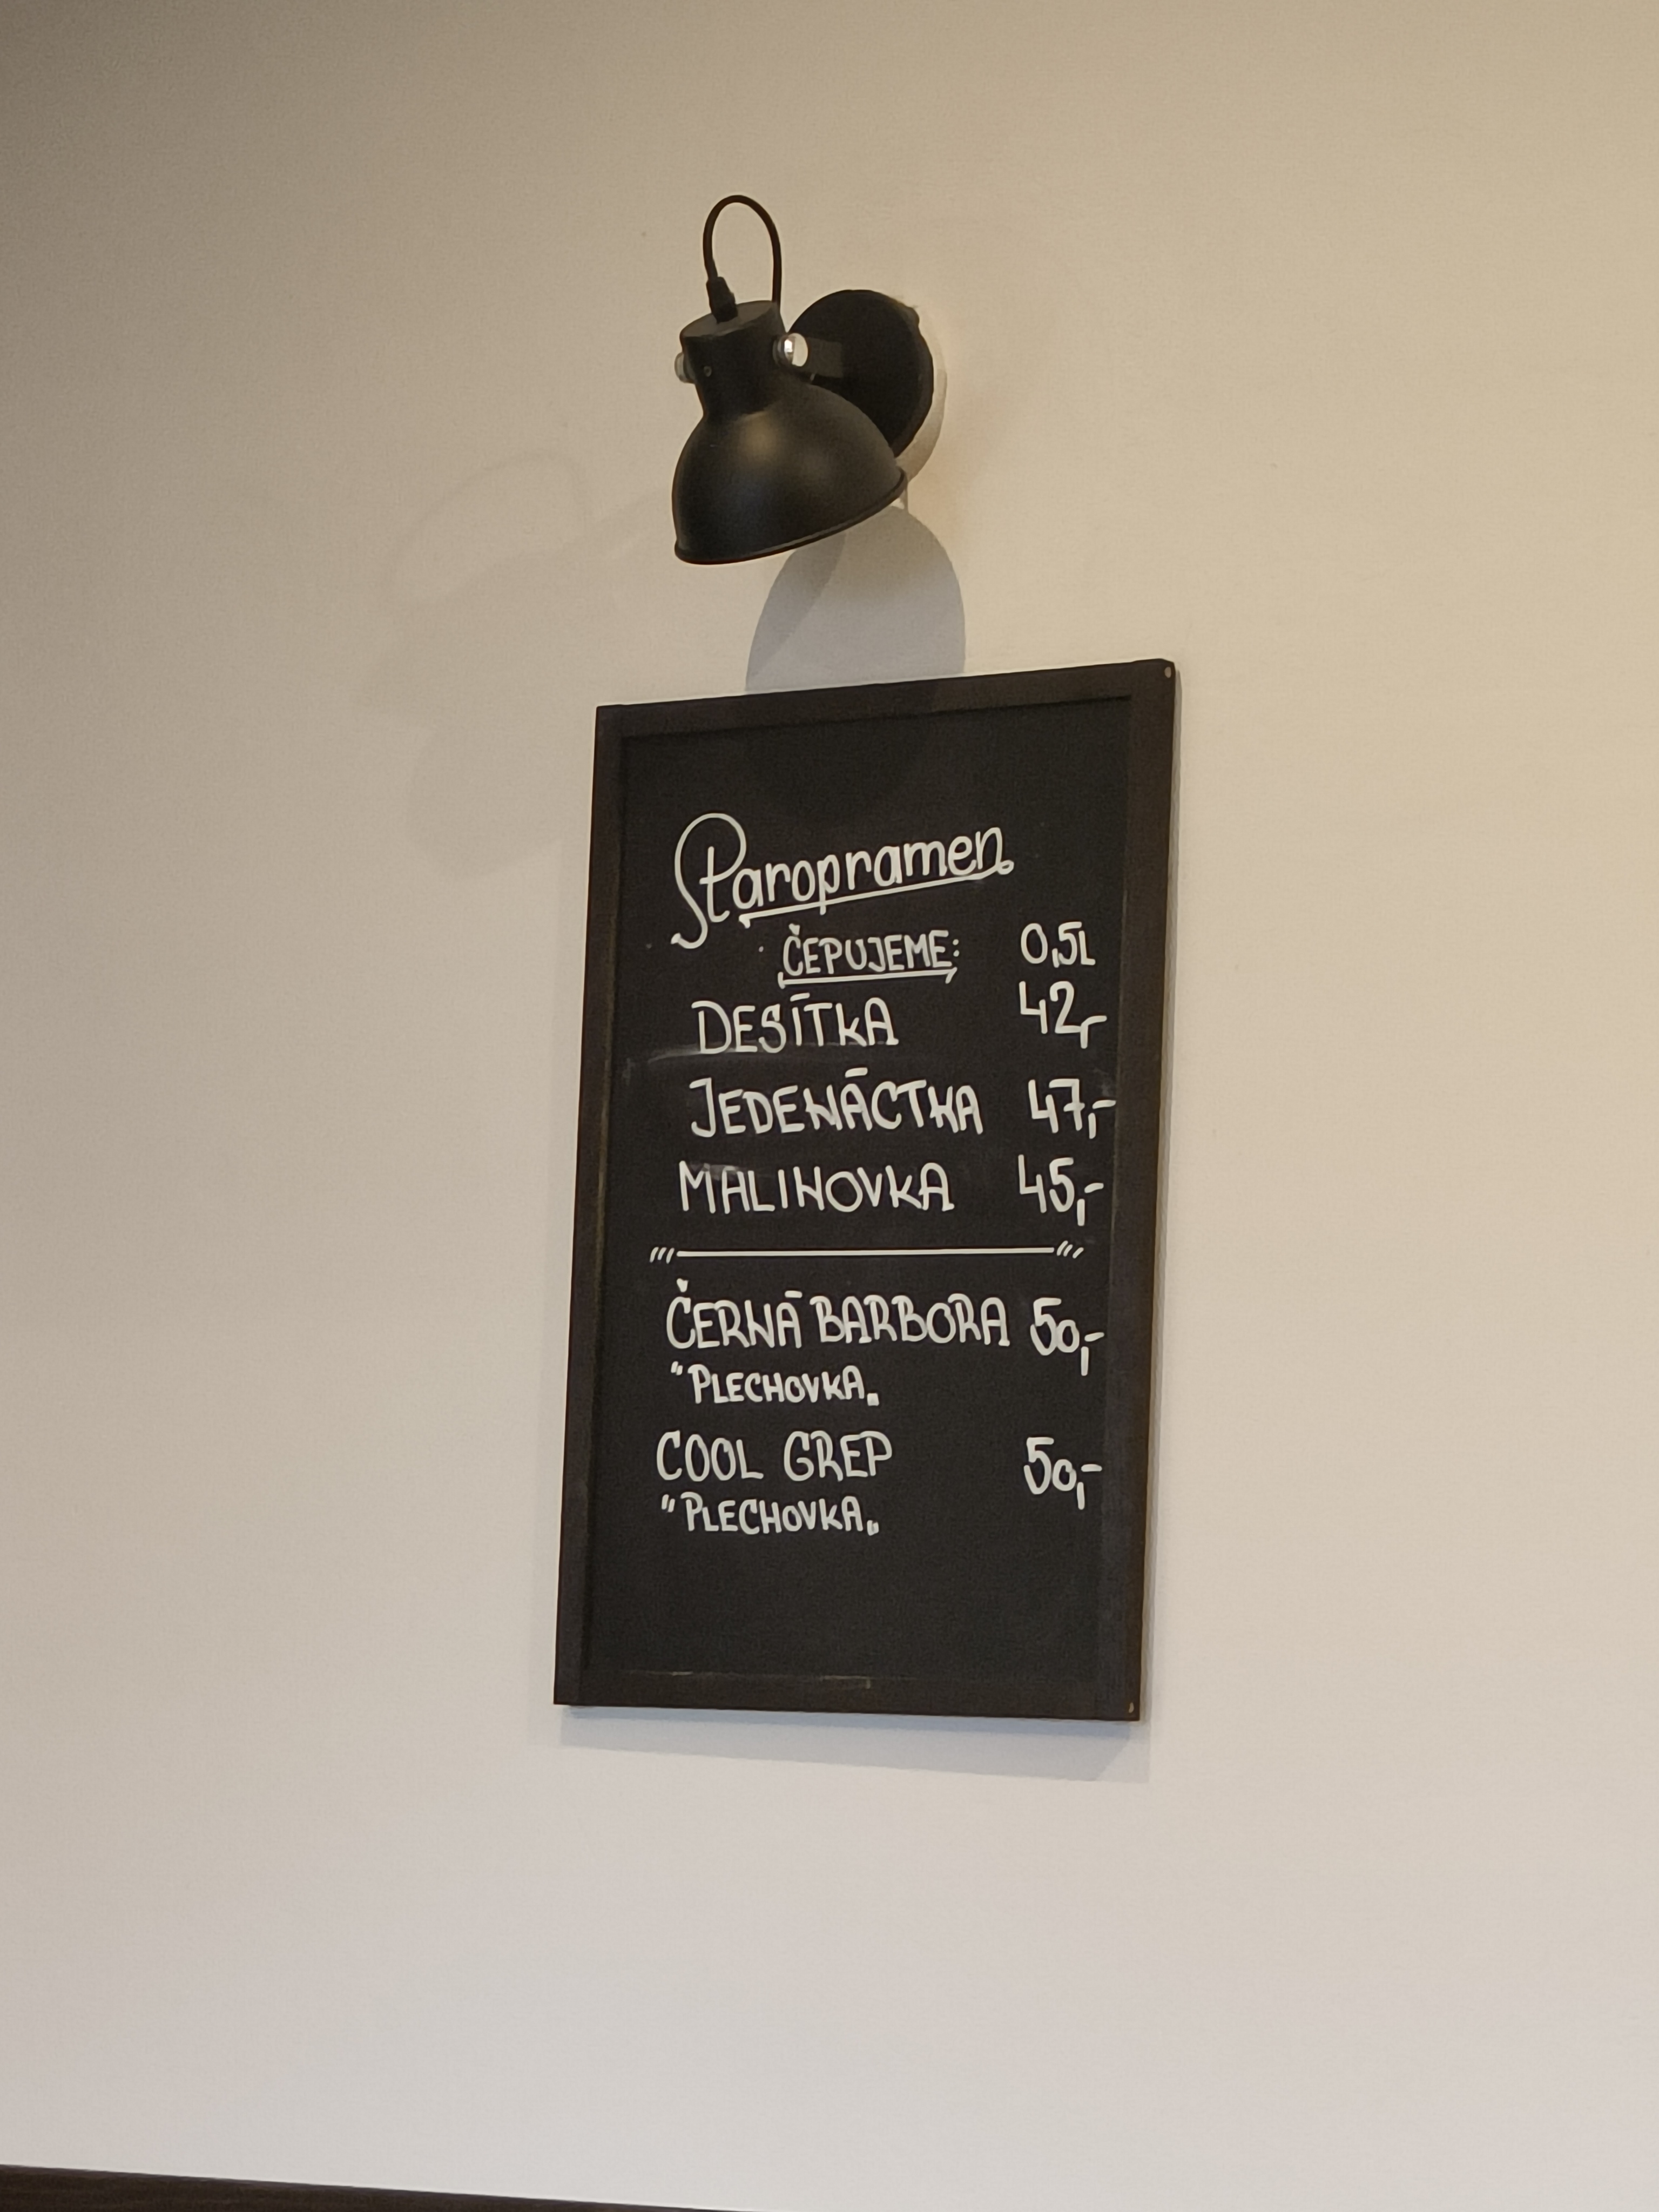 Staropramen
ČEPUJEME: 0,5L
DESÍTKA 42,-
JEDENÁCTKA 47,-
MALINOVKA 45,-
ČERNÁ BARBORA 50,-
"PLECHOVKA"
COOL GREP 50,-
"PLECHOVKA"